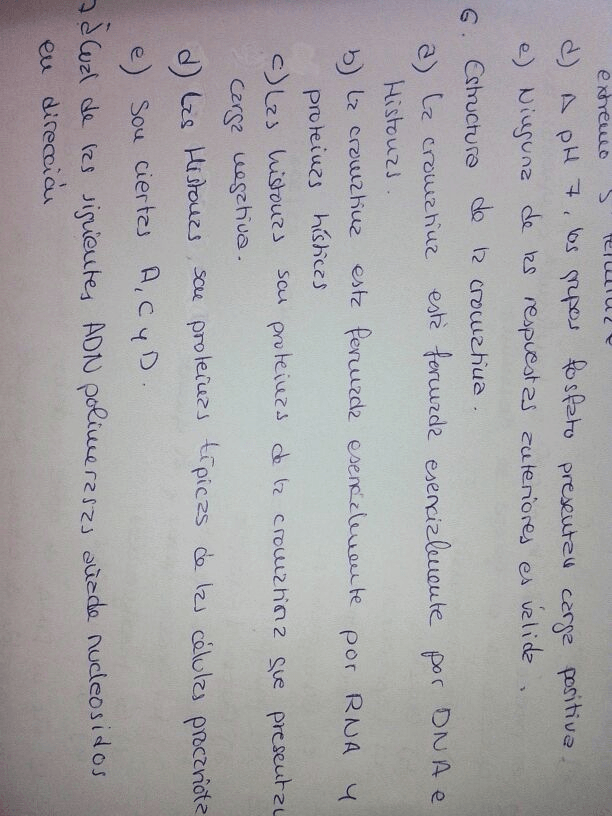 extremo 5'
d) A pH 7, los grupos fosfato presentan carga positiva.
e) Ninguna de las respuestas anteriores es válida.
6. Estructura de la cromatina.
a) La cromatina está formada esencialmente por DNA e
Histonas.
b) La cromatina está formada esencialmente por RNA y
proteínas hísticas
c) Las histonas son proteínas de la cromatina que presentan
carga negativa.
d) Las Histonas, son proteínas típicas de las células procariota
e) Son ciertas A, C y D.
7. ¿Cuál de las siguientes ADN polimerasas añade nucleosidos
en dirección